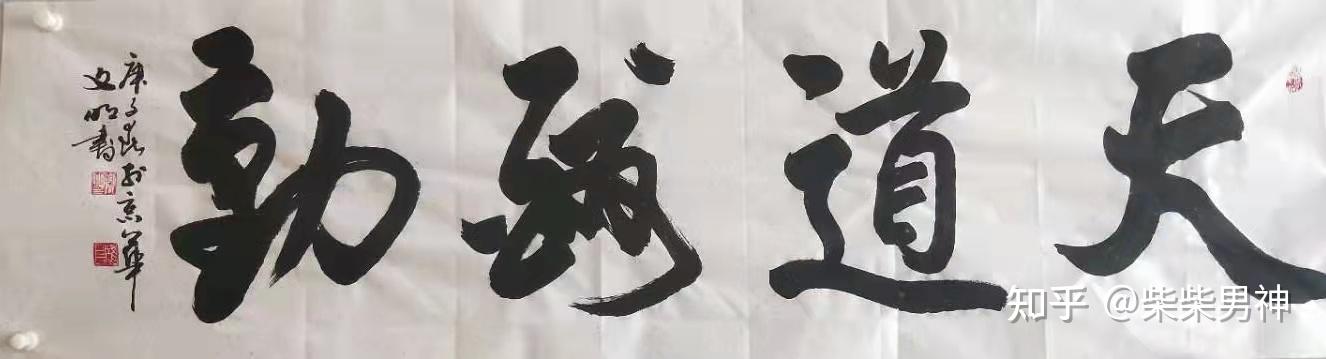 天道酬勤
庚子春於京華
文明書
知乎 @柴柴男神